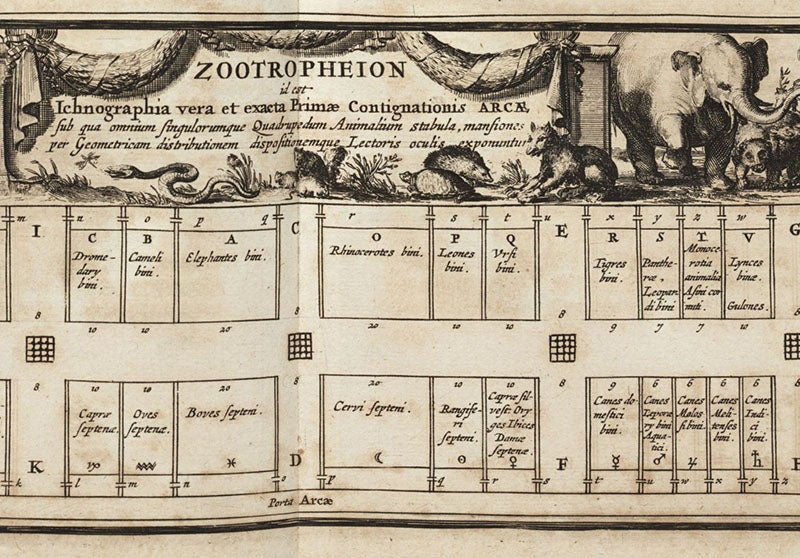 ZOOTROPHEION
id est
Ichnographia vera et exacta Primæ Contignationis ARCÆ,
sub qua omnium singulorumque Quadrupedum Animalium stabula, mansiones
per Geometricam distributionem dispositionemque Lectoris oculis exponuntur
m n o p q r s t u x y z w
I C E G
C B A O P Q R S T V
Drome-
dary
bini.
Cameli
bini.
Elephantes bini.
Rhinocerotes bini.
Leones
bini.
Vrsi
bini.
Tigres
bini.
Panthe-
ræ,
Leopar
di bini
Monoce
rotia
animalia
Asini cor
nuti.
Lynces
binæ.
Gulones.
8 8 8
10 10 20 20 10 10 9 7 7 10
8 8 8 8
10 10 20 20 10 10 9 6 6 6 6
Capræ
septenæ.
Oves
septenæ.
Boves septeni.
Cervi septeni.
Rangife-
ri
septeni.
Capræ sil-
vest: Ory
ges Ibices
Damæ
septenæ.
Canes do
mestici
bini.
Canes
Leporæ
ry bini
Aqua-
tici.
Canes
Molos-
si bini.
Canes
Meli-
tenses
bini.
Canes
Indi-
ci
bini.
♑ ♒ ♓ ☾ ☉ ♀ ☿ ♂ ♃ ♄
K D F H
k l m n o p q r s t u w x y z
Porta Arcæ